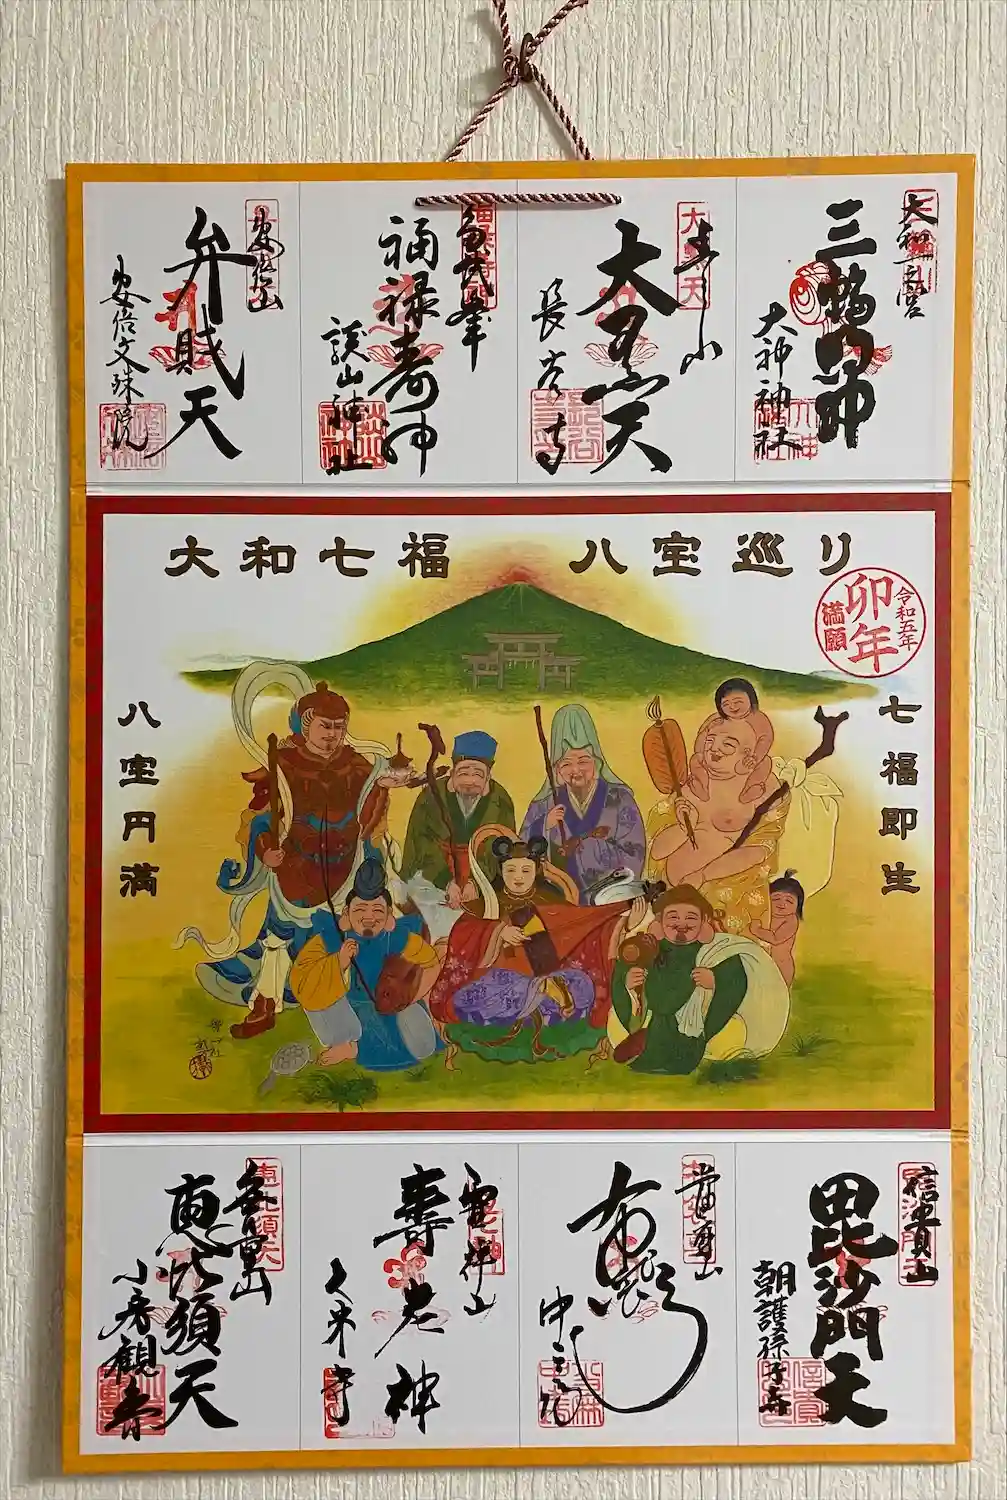 大和一宮
三輪明神
大神神社
大黒天
長谷寺
多武峯
福禄寿神
談山神社
安倍山
弁財天
安倍文殊院
大和七福 八宝巡り
令和五年
卯年
満願
七福即生
八宝円満
信貴山
毘沙門天
朝護孫子寺
布袋
中之坊
霊禅山
寿老神
久米寺
恵比須天
小房観音